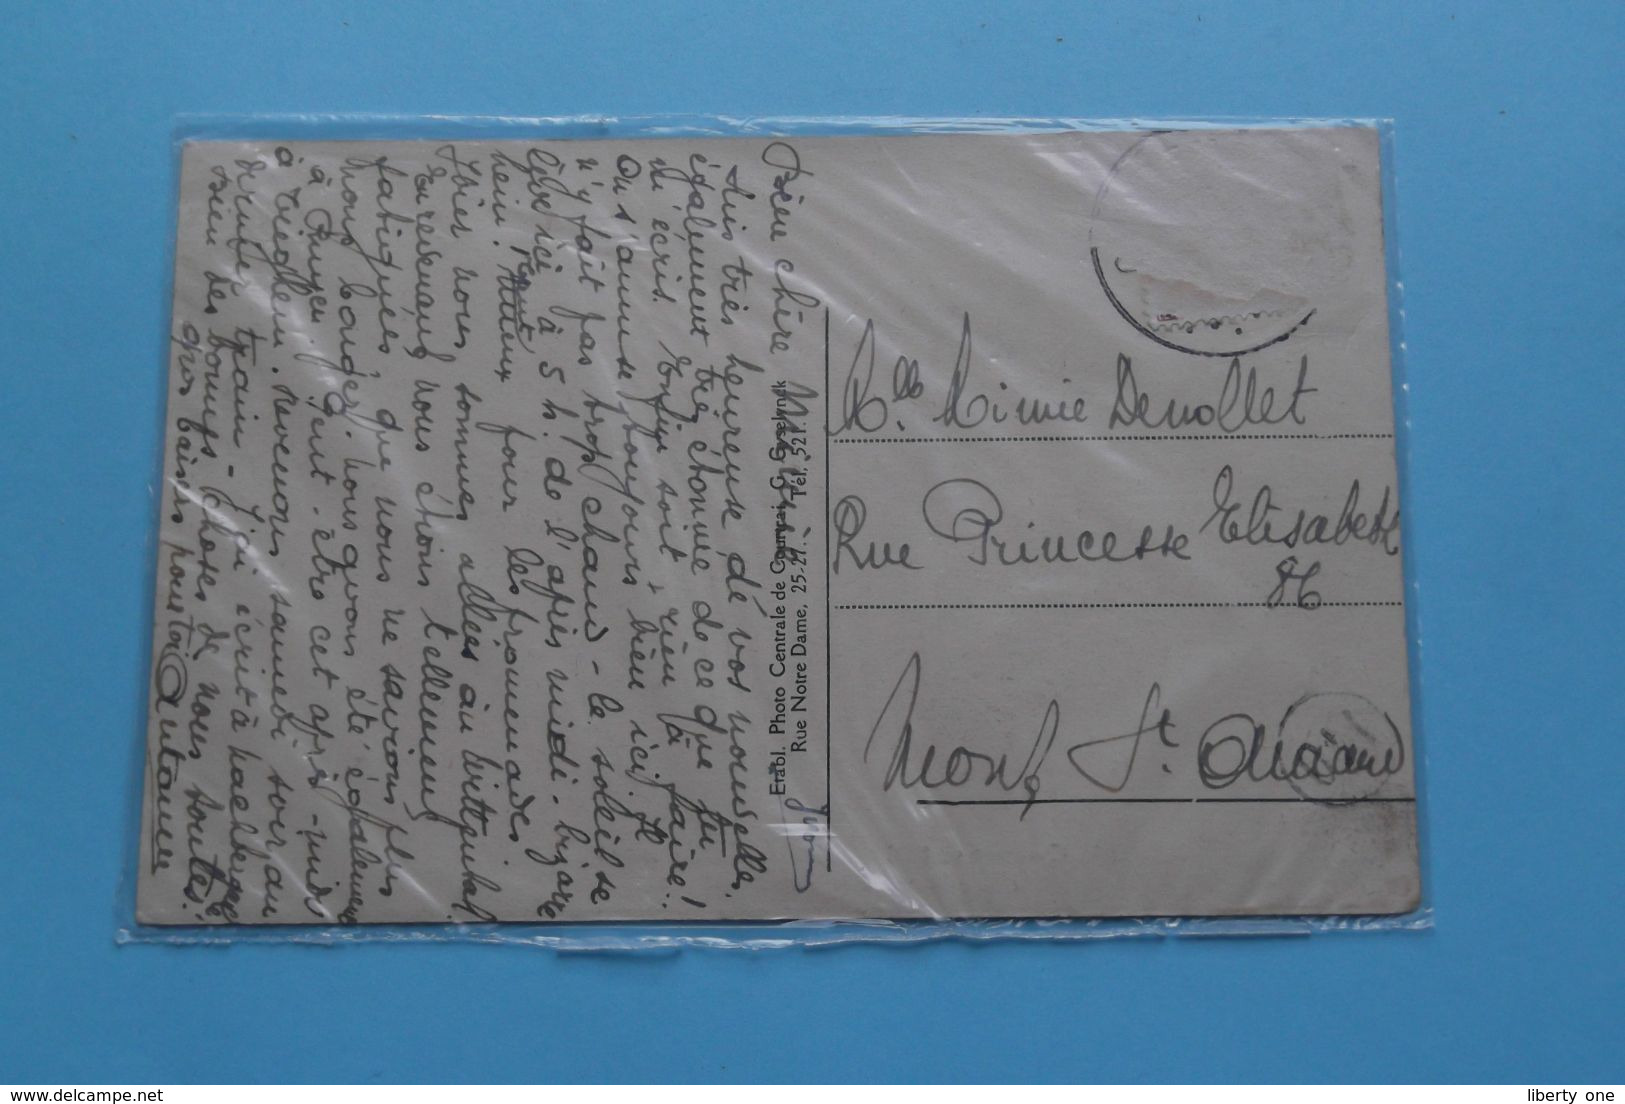 Bien chère Mimie
Suis très heureuse de vos nouvelles
également très étonnée de ce que tu
m'écris. Enfin soit - rien à faire!
On s'amuse toujours bien ici. Il
n'y fait pas trop chaud - le soleil se
lève ici à 5 h. de l'après midi - bizarre
hein. Mieux pour les promenades
Hier nous sommes allées au Wittepul
En revenant nous étions tellement
fatiguées que nous ne savions plus
nous bouger. nous avons été également
à peut-être cet après-midi
à Revenons samedi soir au
train - J'ai écrit à
Bien des bonnes choses de nous toutes.
gros baisers pour toi
Antoinette
Etabl. Photo Centrale de Courtrai, G. Gyselynck
Rue Notre Dame, 25-27. - Tél. 521.
Mlle Mimie Denollet
Rue Princesse Elisabeth
86
Mont St. Amand
liberty one